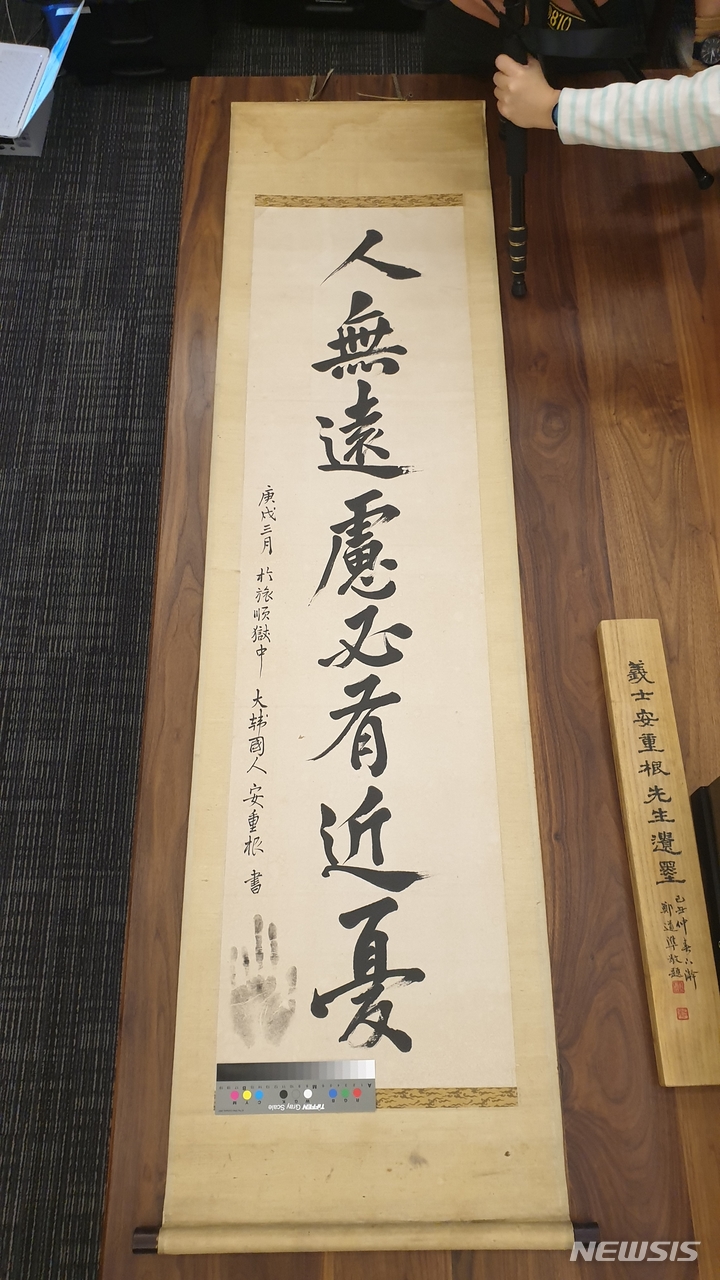 人無遠慮必有近憂
庚戌三月 於旅順獄中 大韓國人 安重根 書
義士安重根先生遺墨
己丑仲春
鄭道準敬題
TIFFEN Gray Scale
NEWSIS